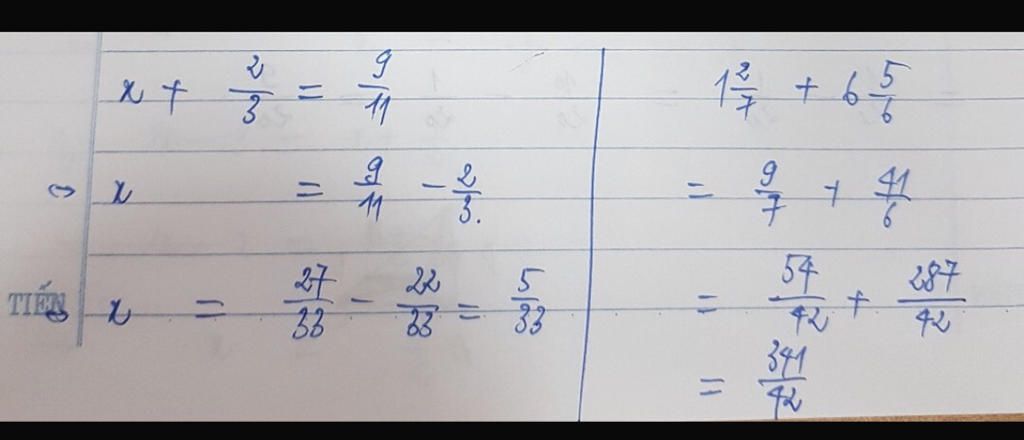 x + 2/3 = 9/11
⇔ x = 9/11 - 2/3.
TIẾN
⇔ x = 27/33 - 22/33 = 5/33
1 2/7 + 6 5/6
= 9/7 + 41/6
= 54/42 + 287/42
= 341/42